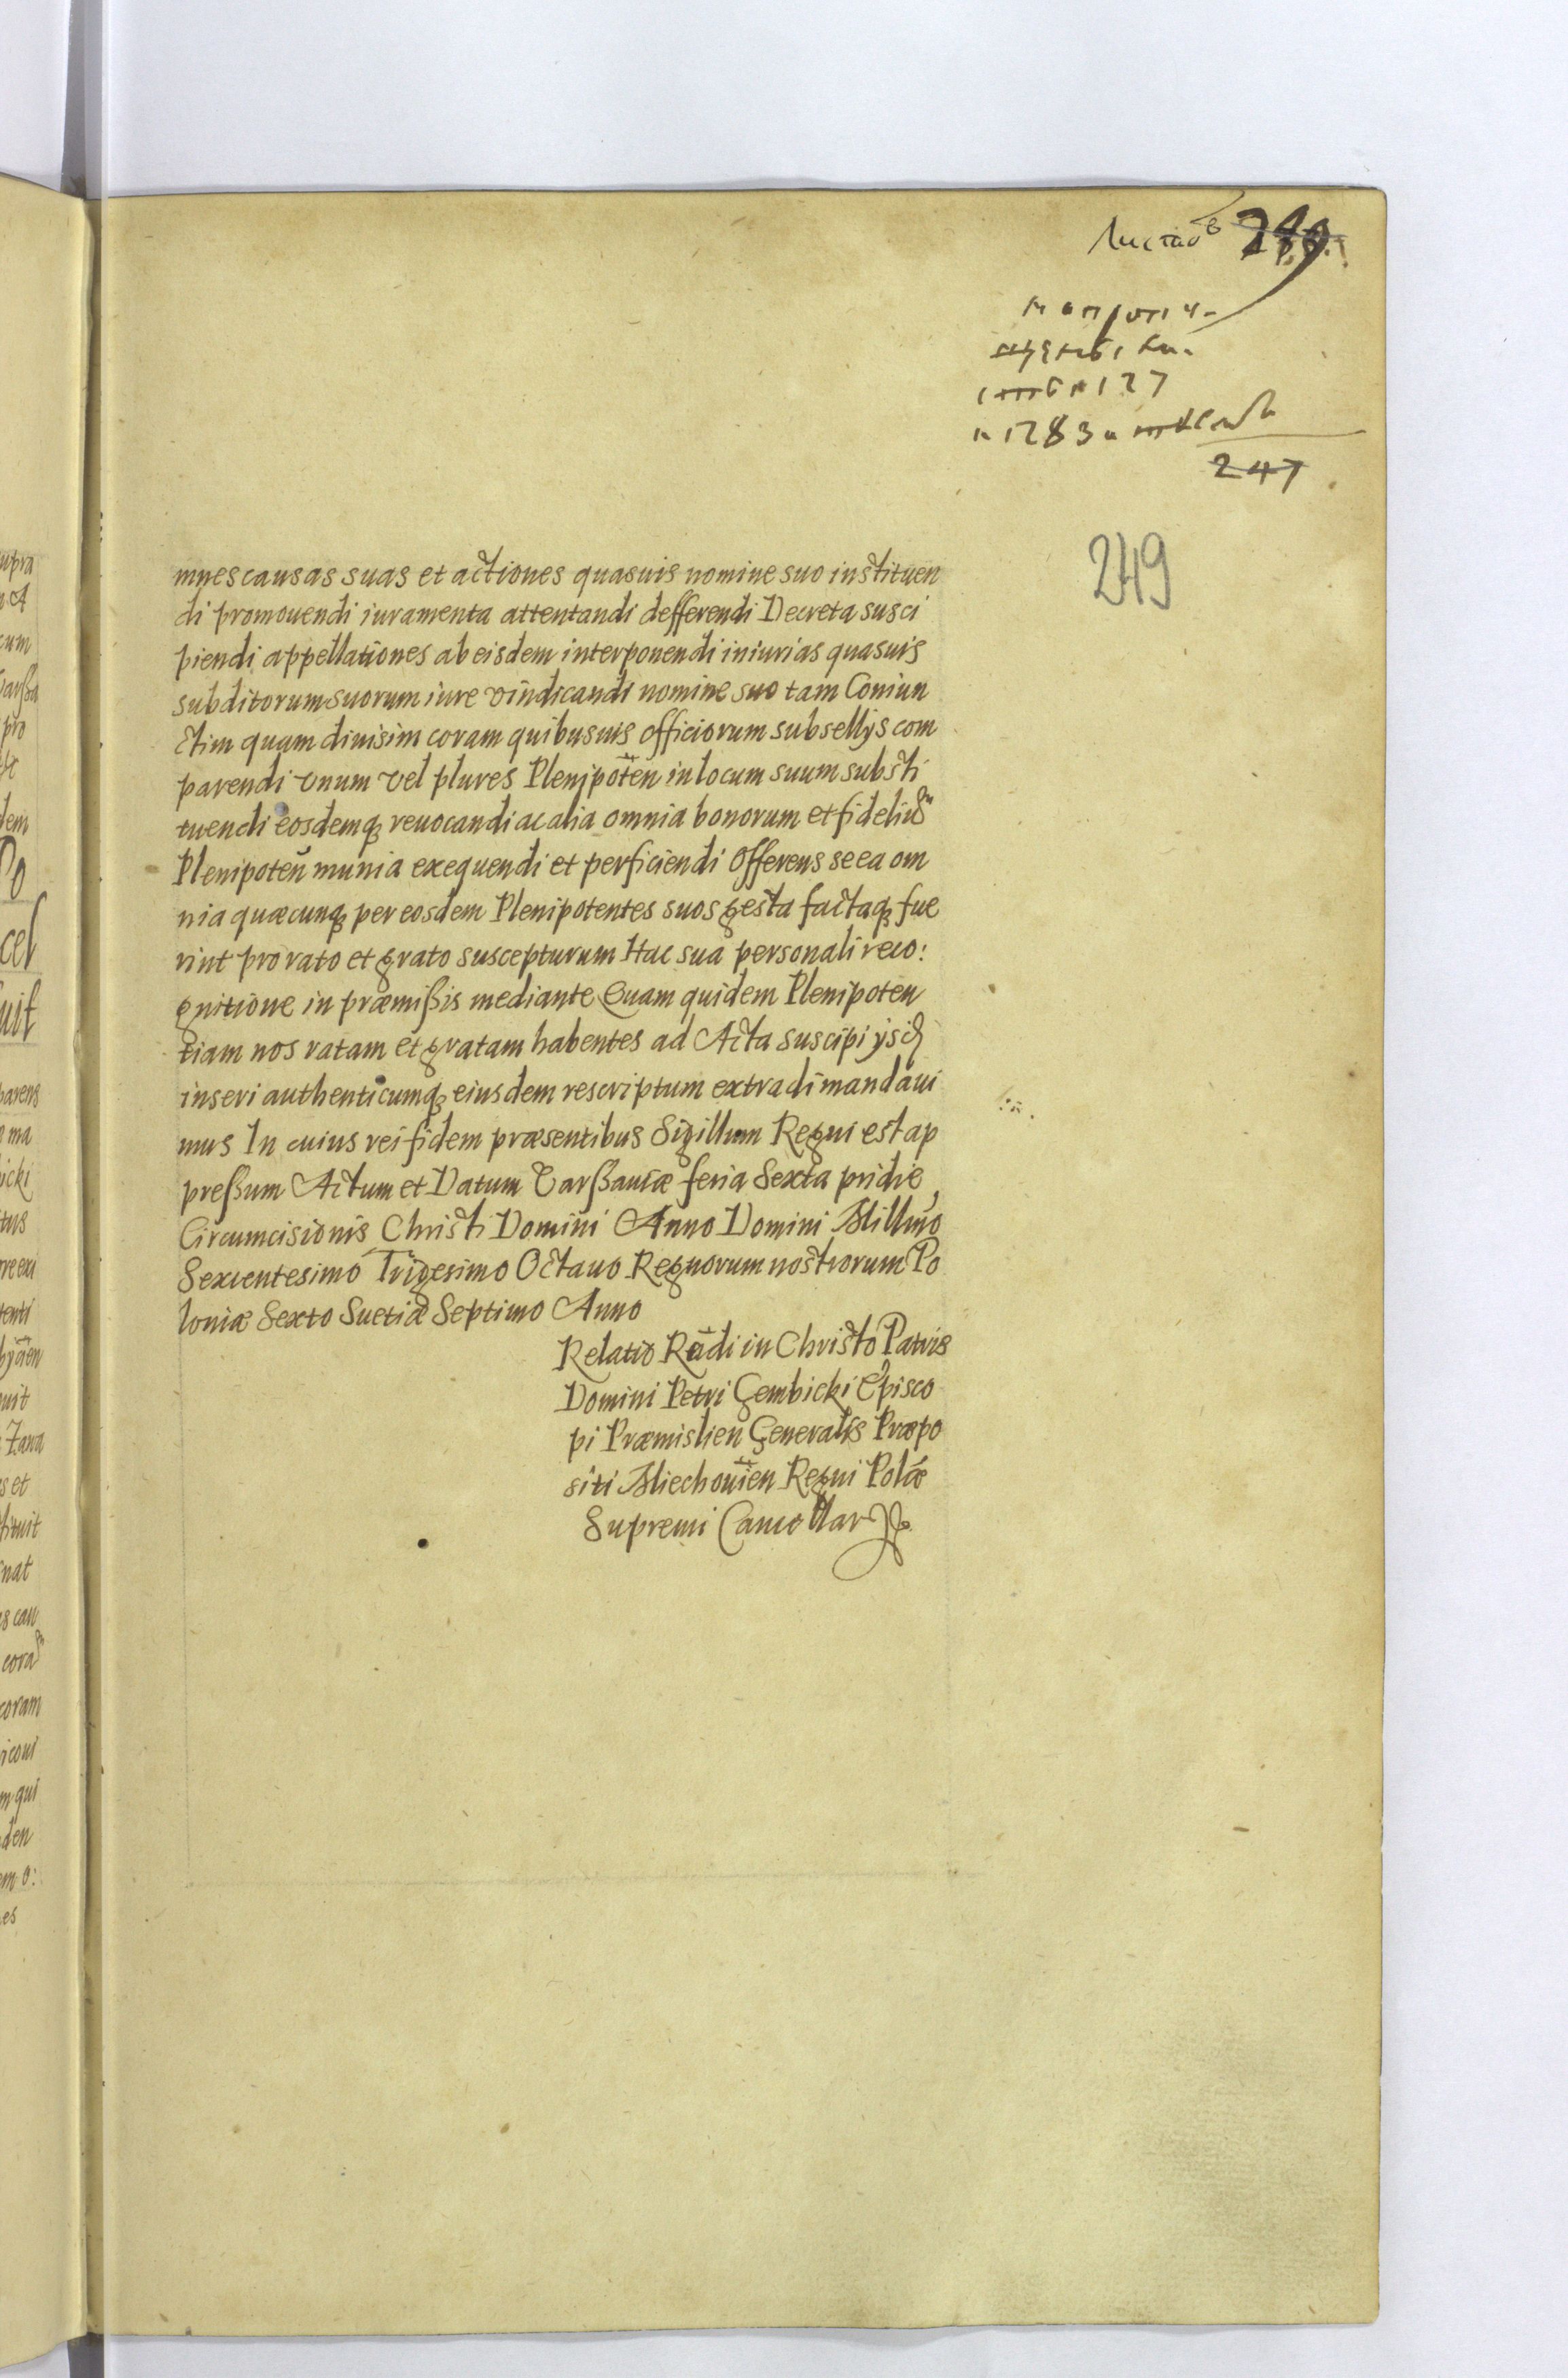 Листовъ
247
249
mnes causas suas et actiones quasuis nomine suo instituen
di promouendi iuramenta attentandi defferendi Decreta susci
piendi appellationes ab eisdem interponendi iniurias quasuis
subditorum suorum iure vindicandi nomine suo tam Coniun
ctim quam diuisim coram quibusuis officiorum subsellijs com
parendi vnum vel plures Plenipoten in locum suum substi
tuendi eosdemq reuocandi ac alia omnia bonorum et fideliũ
Plenipoteñ munia exequendi et perficiendi Offerens se ea om
nia quæcunq per eosdem Plenipotentes suos gesta factaq fue
rint pro rato et grato suscepturum Hac sua personali reco:
gnitione in præmißis mediante Quam quidem Plenipoten
tiam nos ratam et gratam habentes ad Acta suscipi ijsq
inseri authenticumq eiusdem rescriptum extradi mandaui
mus In cuius rei fidem præsentibus Sigillum Regni est ap
preßum Actum et Datum Varßauiæ feria Sexta pridie
Circumcisionis Christi Domini Anno Domini Millmo
Sexcentesimo Trigesimo Octauo Regnorum nostrorum Po
loniæ Sexto Suetiæ Septimo Anno
Relatio Rndi in Christo Patris
Domini Petri Gembicki Episco
pi Præmislien Generalis Præpo
siti Miechouien Regni Polæ
Supremi Cancellarij